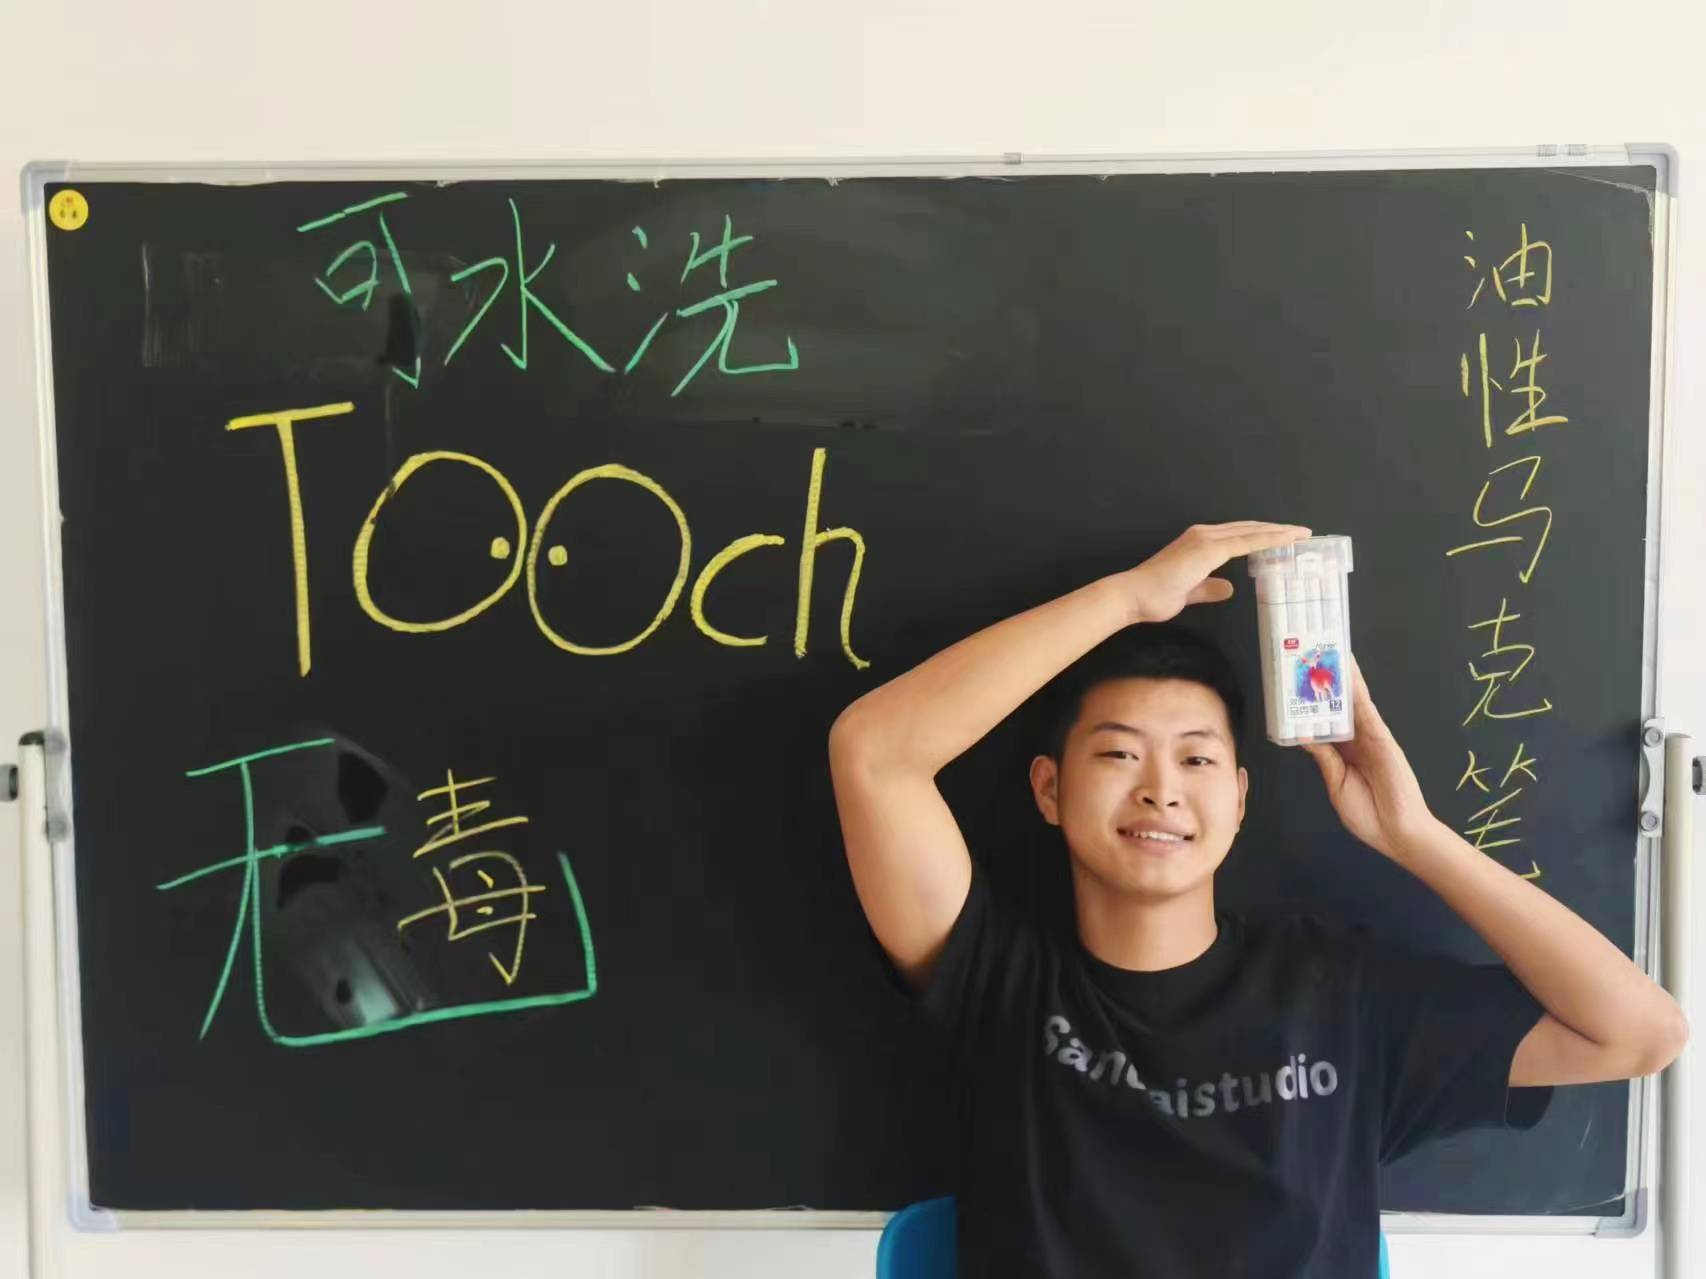 可水洗
Tooch
无毒
油性马克笔
Marker
马克笔
12
San aistudio